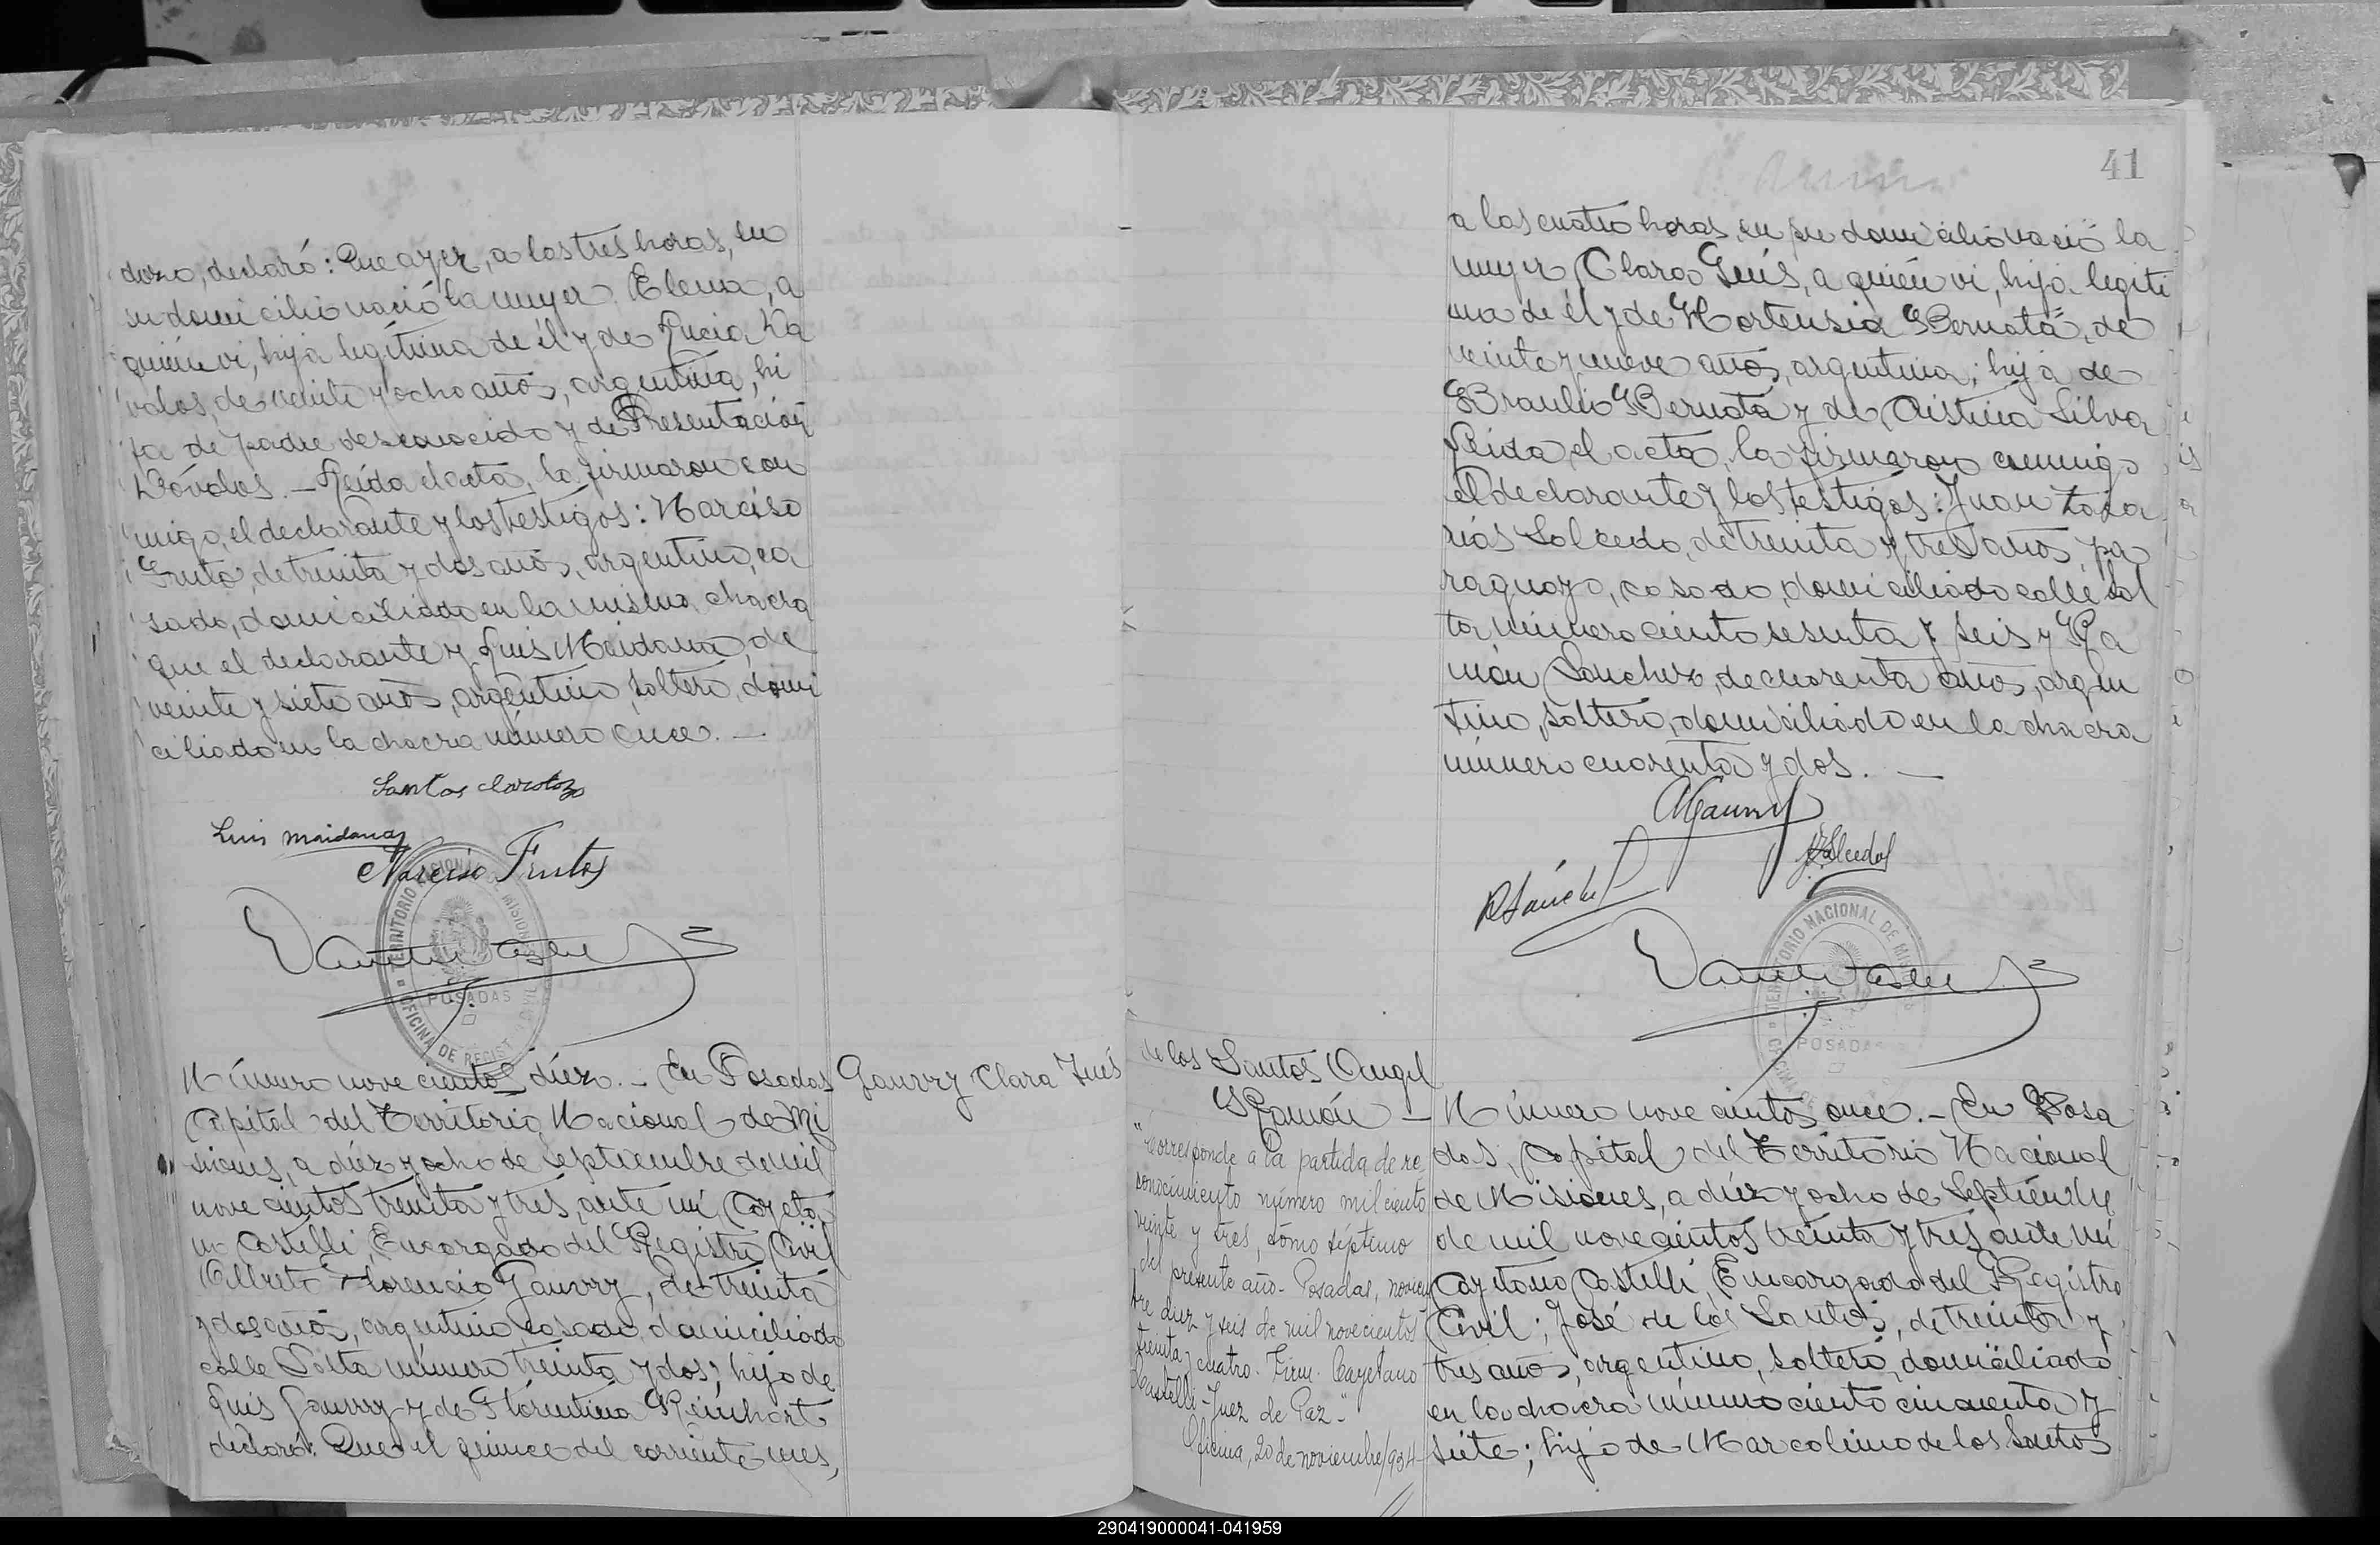 dozo, declaró: Que ayer, a las tres horas, en
su domicilio nació la mujer Elena, a
quién vi, hija legítima de él y de Lucia Dá
valos, de veinte y ocho años, argentina, hi
ja de padre desconocido y de Presentación
Dávalos. — Leída el acta, la firmaron con
migo, el declarante y los testigos: Narciso
Fruto, de treinta y dos años, argentino, ca
sado, domiciliado en la misma chacra
que el declarante y Luis Maidana, de
veinte y siete años, argentino, soltero, domi
ciliado en la chacra número once. —
Santos
Luis Maidana
Narciso Frutos
TERRITORIO NACIONAL DE MISIONES
POSADAS
OFICINA DE REGISTRO CIVIL
Número novecientos diez. — En Posadas
Capital del Territorio Nacional de Mi
siones, a diez y ocho de Septiembre de mil
novecientos treinta y tres, ante mí, Cayeta
no Castelli, Encargado del Registro Civil
Alberto Florencio Gauvry, de treinta
y dos años, argentino, casado, domiciliado
calle Salta número treinta y dos; hijo de
Luis Gauvry y de Florentina Reinhart
declaró: Que el quince del corriente mes,
Gauvry Clara Inés
41
a las cuatro horas, en su domicilio nació la
mujer Clara Inés, a quién vi, hija legíti
ma de él y de Hortensia Bernatá, de
veinte y nueve años, argentina; hija de
Braulio Bernatá y de Cristina Silva
Leída el acta, la firmaron conmigo
el declarante y los testigos: Juan Zaca
rías Salcedo, de treinta y tres años, pa
raguayo, casado, domiciliado calle Sal
ta número ciento sesenta y seis y Ra
món Sanchez, de cuarenta años, argen
tino, soltero, domiciliado en la chacra
número cuarenta y dos. —
AGauvry
JZSalcedo
RSánchez
TERRITORIO NACIONAL DE MI
POSADAS
de los Santos Angel
Ramón —
"Corresponde a la partida de re
conocimiento número mil ciento
veinte y tres, tomo séptimo
del presente año. Posadas, noviem
bre diez y seis de mil novecientos
treinta y cuatro. Firm. Cayetano
Castelli - Juez de Paz."
Oficina, 20 de noviembre/934
Número novecientos once. — En Posa
das, Capital del Territorio Nacional
de Misiones, a diez y ocho de Septiembre
de mil novecientos treinta y tres ante mí
Cayetano Castelli, Encargado del Registro
Civil; José de los Santos, de treinta y
tres años, argentino, soltero, domiciliado
en la chacra número ciento cincuenta y
siete; hijo de Marcolino de los Santos